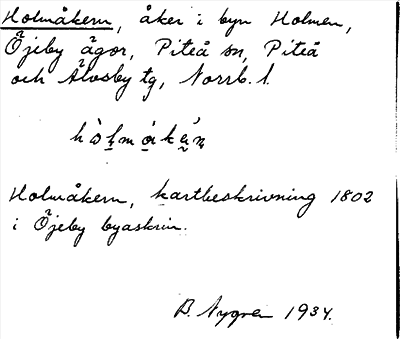 Holmåkern, åker i byn Holmen,
Öjeby ägor, Piteå sn, Piteå
och Älvsby tg, Norrb. l.
Holmåkern, kartbeskrivning 1802
i Öjeby byaskrin.
B. Nygren 1934.